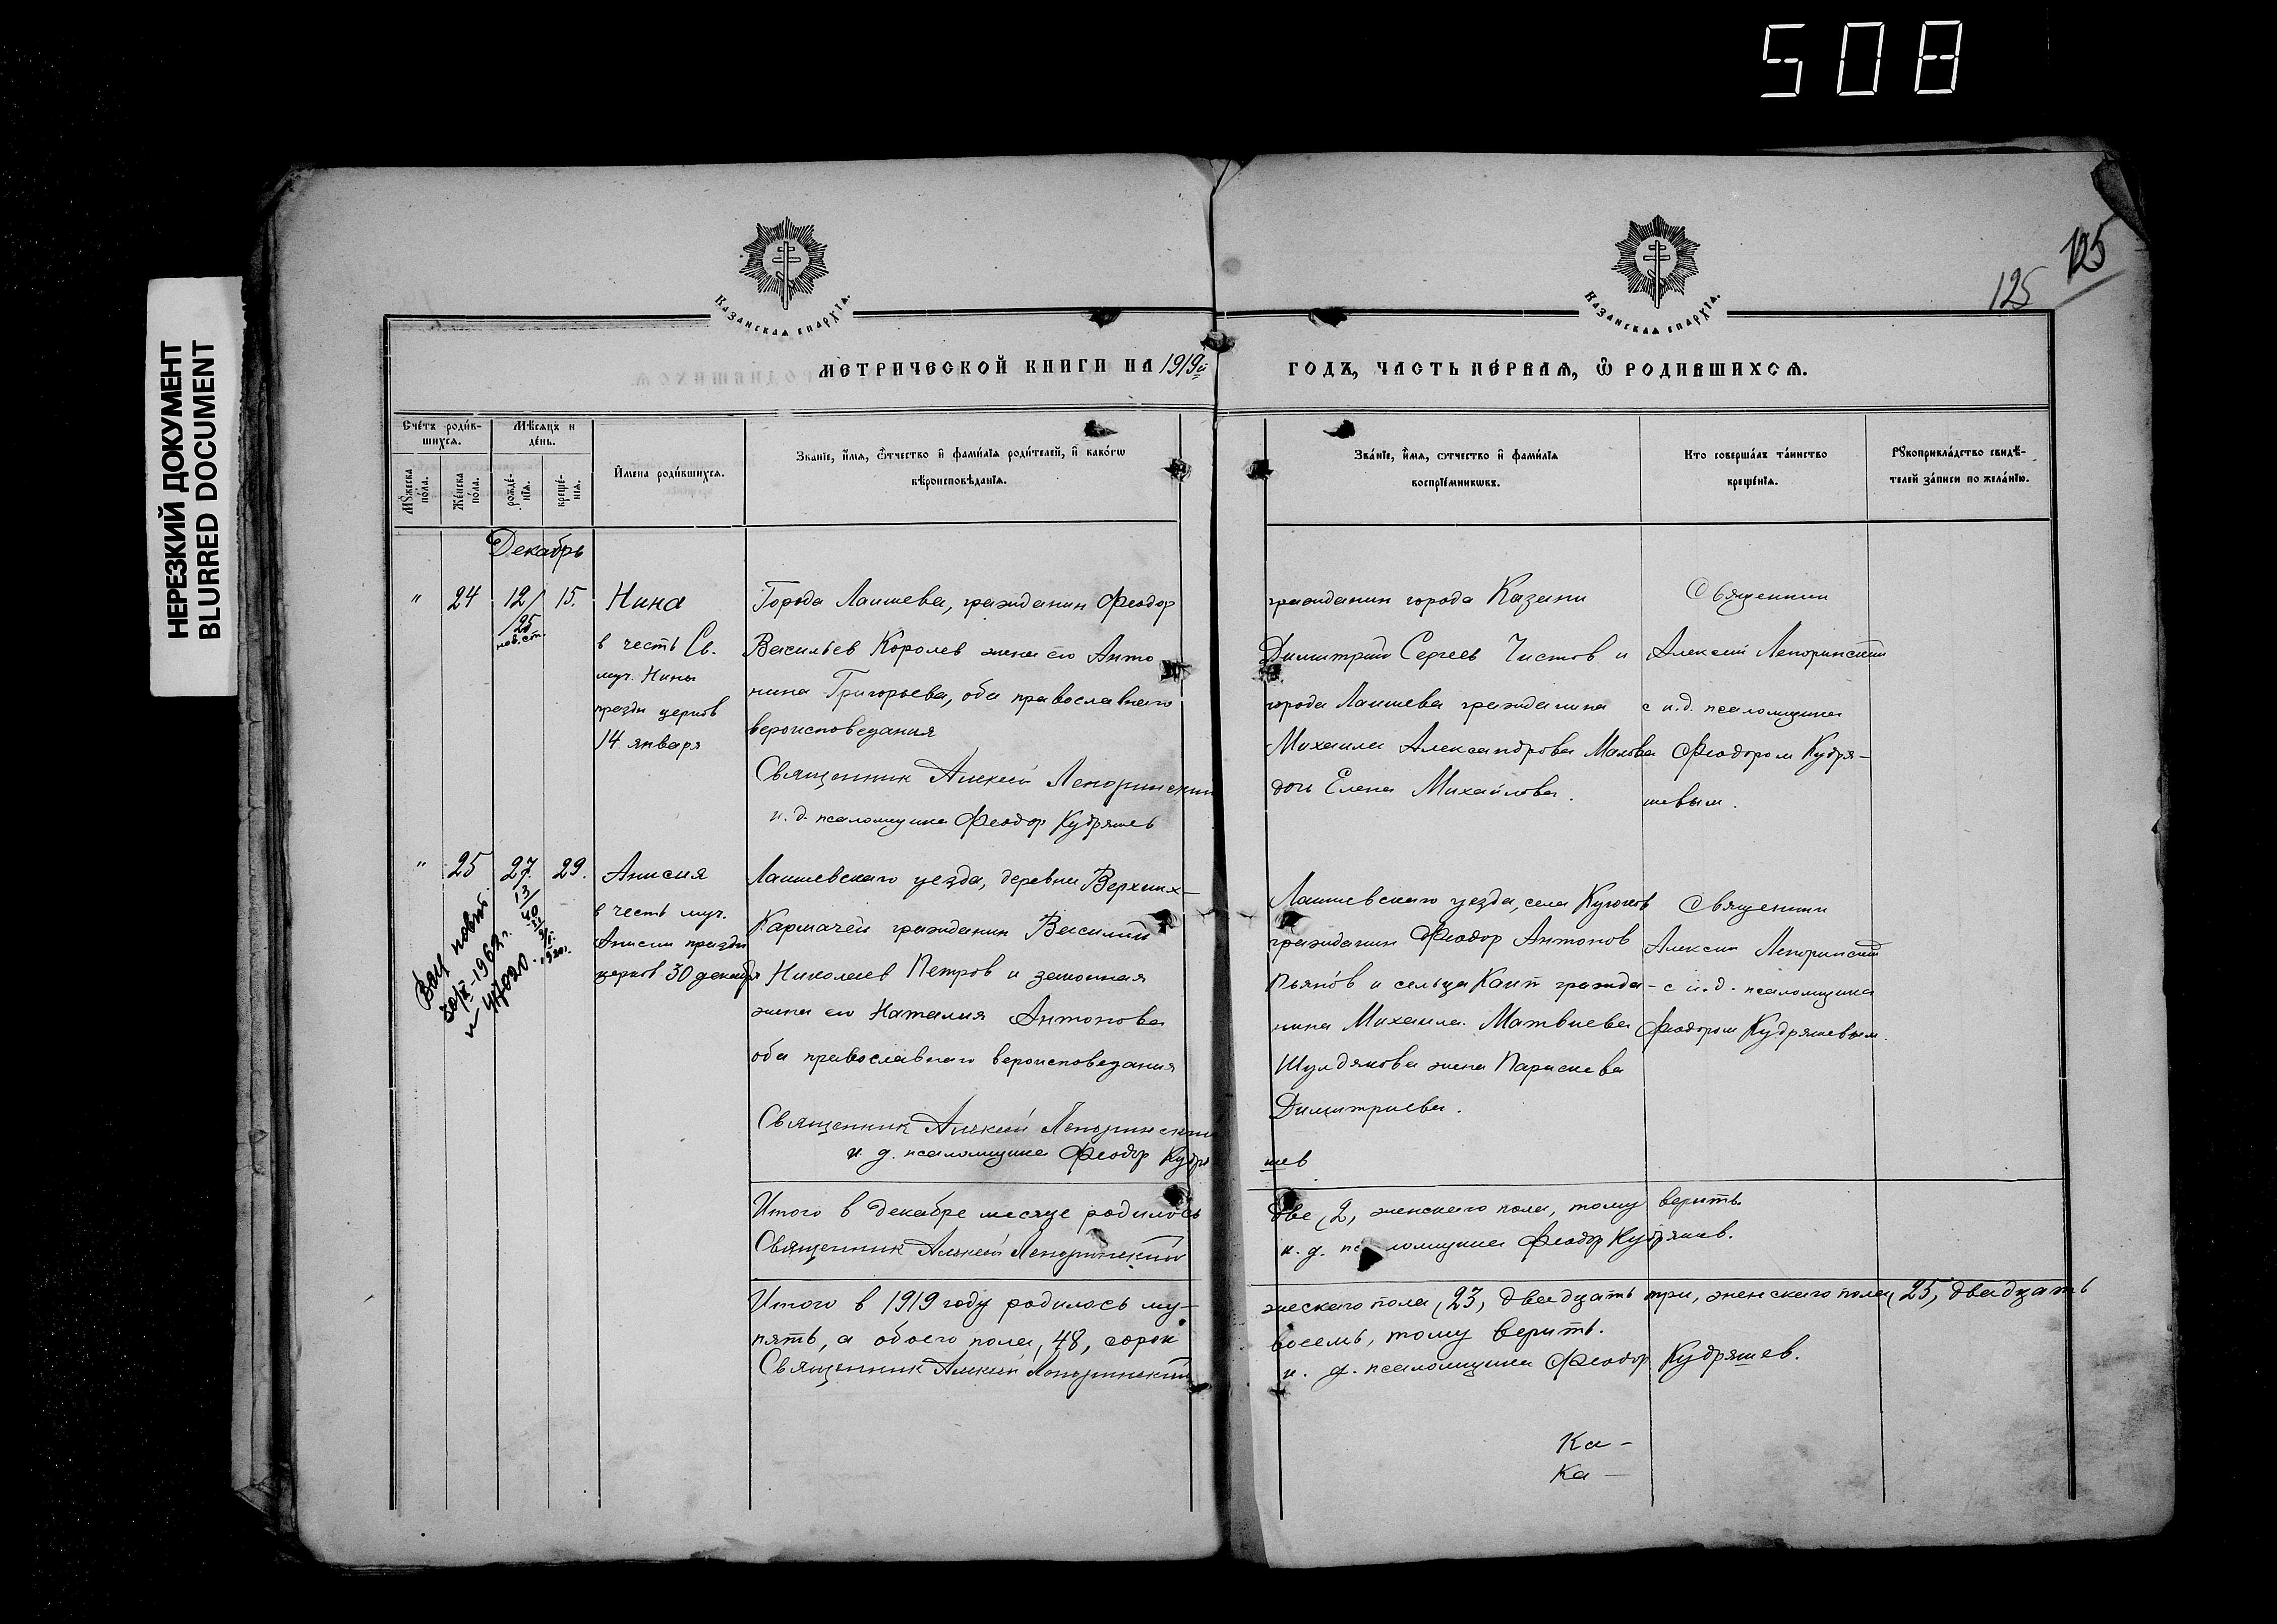 508
НЕРЕЗКИЙ ДОКУМЕНТ
BLURRED DOCUMENT
125
125
Казанская епархїѧ.
Казанская епархїѧ.
МЕТРИЧЕСКОЙ КНИГИ НА 1919й ГОДЪ, ЧАСТЬ ПЕ́РВАѦ, Ѿ РОДИВШИХСѦ.
Сче́тъ роди́в-
шихсѧ.
Мѣсѧцъ и
де́нь.
Мꙋ́жеска
по́ла.
Же́нска
по́ла.
рожде́-
нїѧ.
креще́-
нїѧ.
И҆мена роди́вшихсѧ.
Зва́нїе, и҆́мѧ, ѻ҆́тчество и҆ фами́лїѧ роди́телей, и҆ како́гѡ
вѣроисповѣ́данїѧ.
Зва́нїе, и҆́мѧ, ѻ҆́тчество и҆ фами́лїѧ
воспрїе́мникѡвъ.
Кто соверша́лъ та́инство
креще́нїѧ.
Рꙋкоприкла́дство свидѣ́-
телей за́писи по жела́нїю.
Декабрь
" 24 12/ 15. Нина
/25
нов. ст.
в честь Св.
муч. Нины
празд церков
14 января
Города Лаишева, гражданин Феодор
Васильев Королев жена его Анто
нина Григорьева, оба православнаго
вероисповедания
Священник Алексий Лепоринский
и. д. псаломщика Феодор Кудряшев
гражданин города Казани
Димитрий Сергеев Чистов и
города Лаишева гражданина
Михаила Александрова Малова
дочь Елена Михайлова.
Священник
Алексий Лепоринский
с и.д. псаломщика
Феодором Кудря-
шевым.
" 25 27. 29. Анисия
13/
в честь муч.
Анисии праздн
церков 30 декабря
1920.
Лаишевскаго уезда, деревни Верхних-
Кармачей гражданин Василий
Николаев Петров и законная
жена его Наталия Антонова
оба православнаго вероисповедания
Священник Алексий Лепоринский
и. д. псаломщика Феодор Кудря
шев
Лаишевскаго уезда, села Кулюков
гражданин Феодор Антонов
Пьянов и сельца Каип гражда-
нина Михаила Матвиева
Шулдякова жена Параскева
Димитриева.
Священник
Алексий Лепоринский
с и.д. псаломщика
Феодором Кудряшевым.
Итого в декабре месяце родилось две, 2, женскаго пола, тому верить.
Священник Алексий Лепоринский и. д. псаломщика Феодор Кудряшев.
Итого в 1919 году родилось му- жескаго пола, 23, двадцать три, женскаго пола, 25, двадцать
пять, а обоего пола, 48, сорок восемь, тому верить.
Священник Алексий Лепоринский и. д. псаломщика Феодор Кудряшев.
Ка-
Ка-